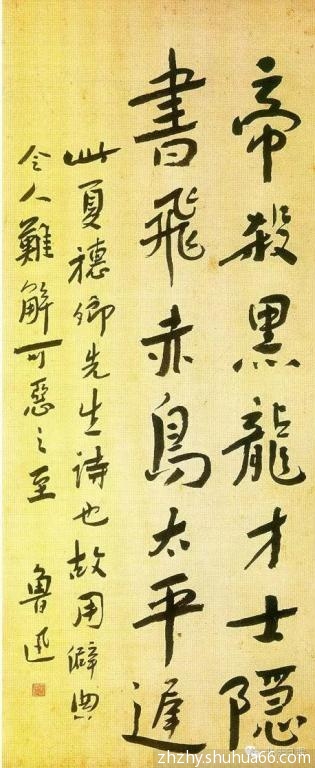 帝殺黑龍才士隱
書飛赤鳥太平遲
此夏穗卿先生詩也故用僻典
令人難解可惡之至
魯迅
zhzhy.shuhua66.com